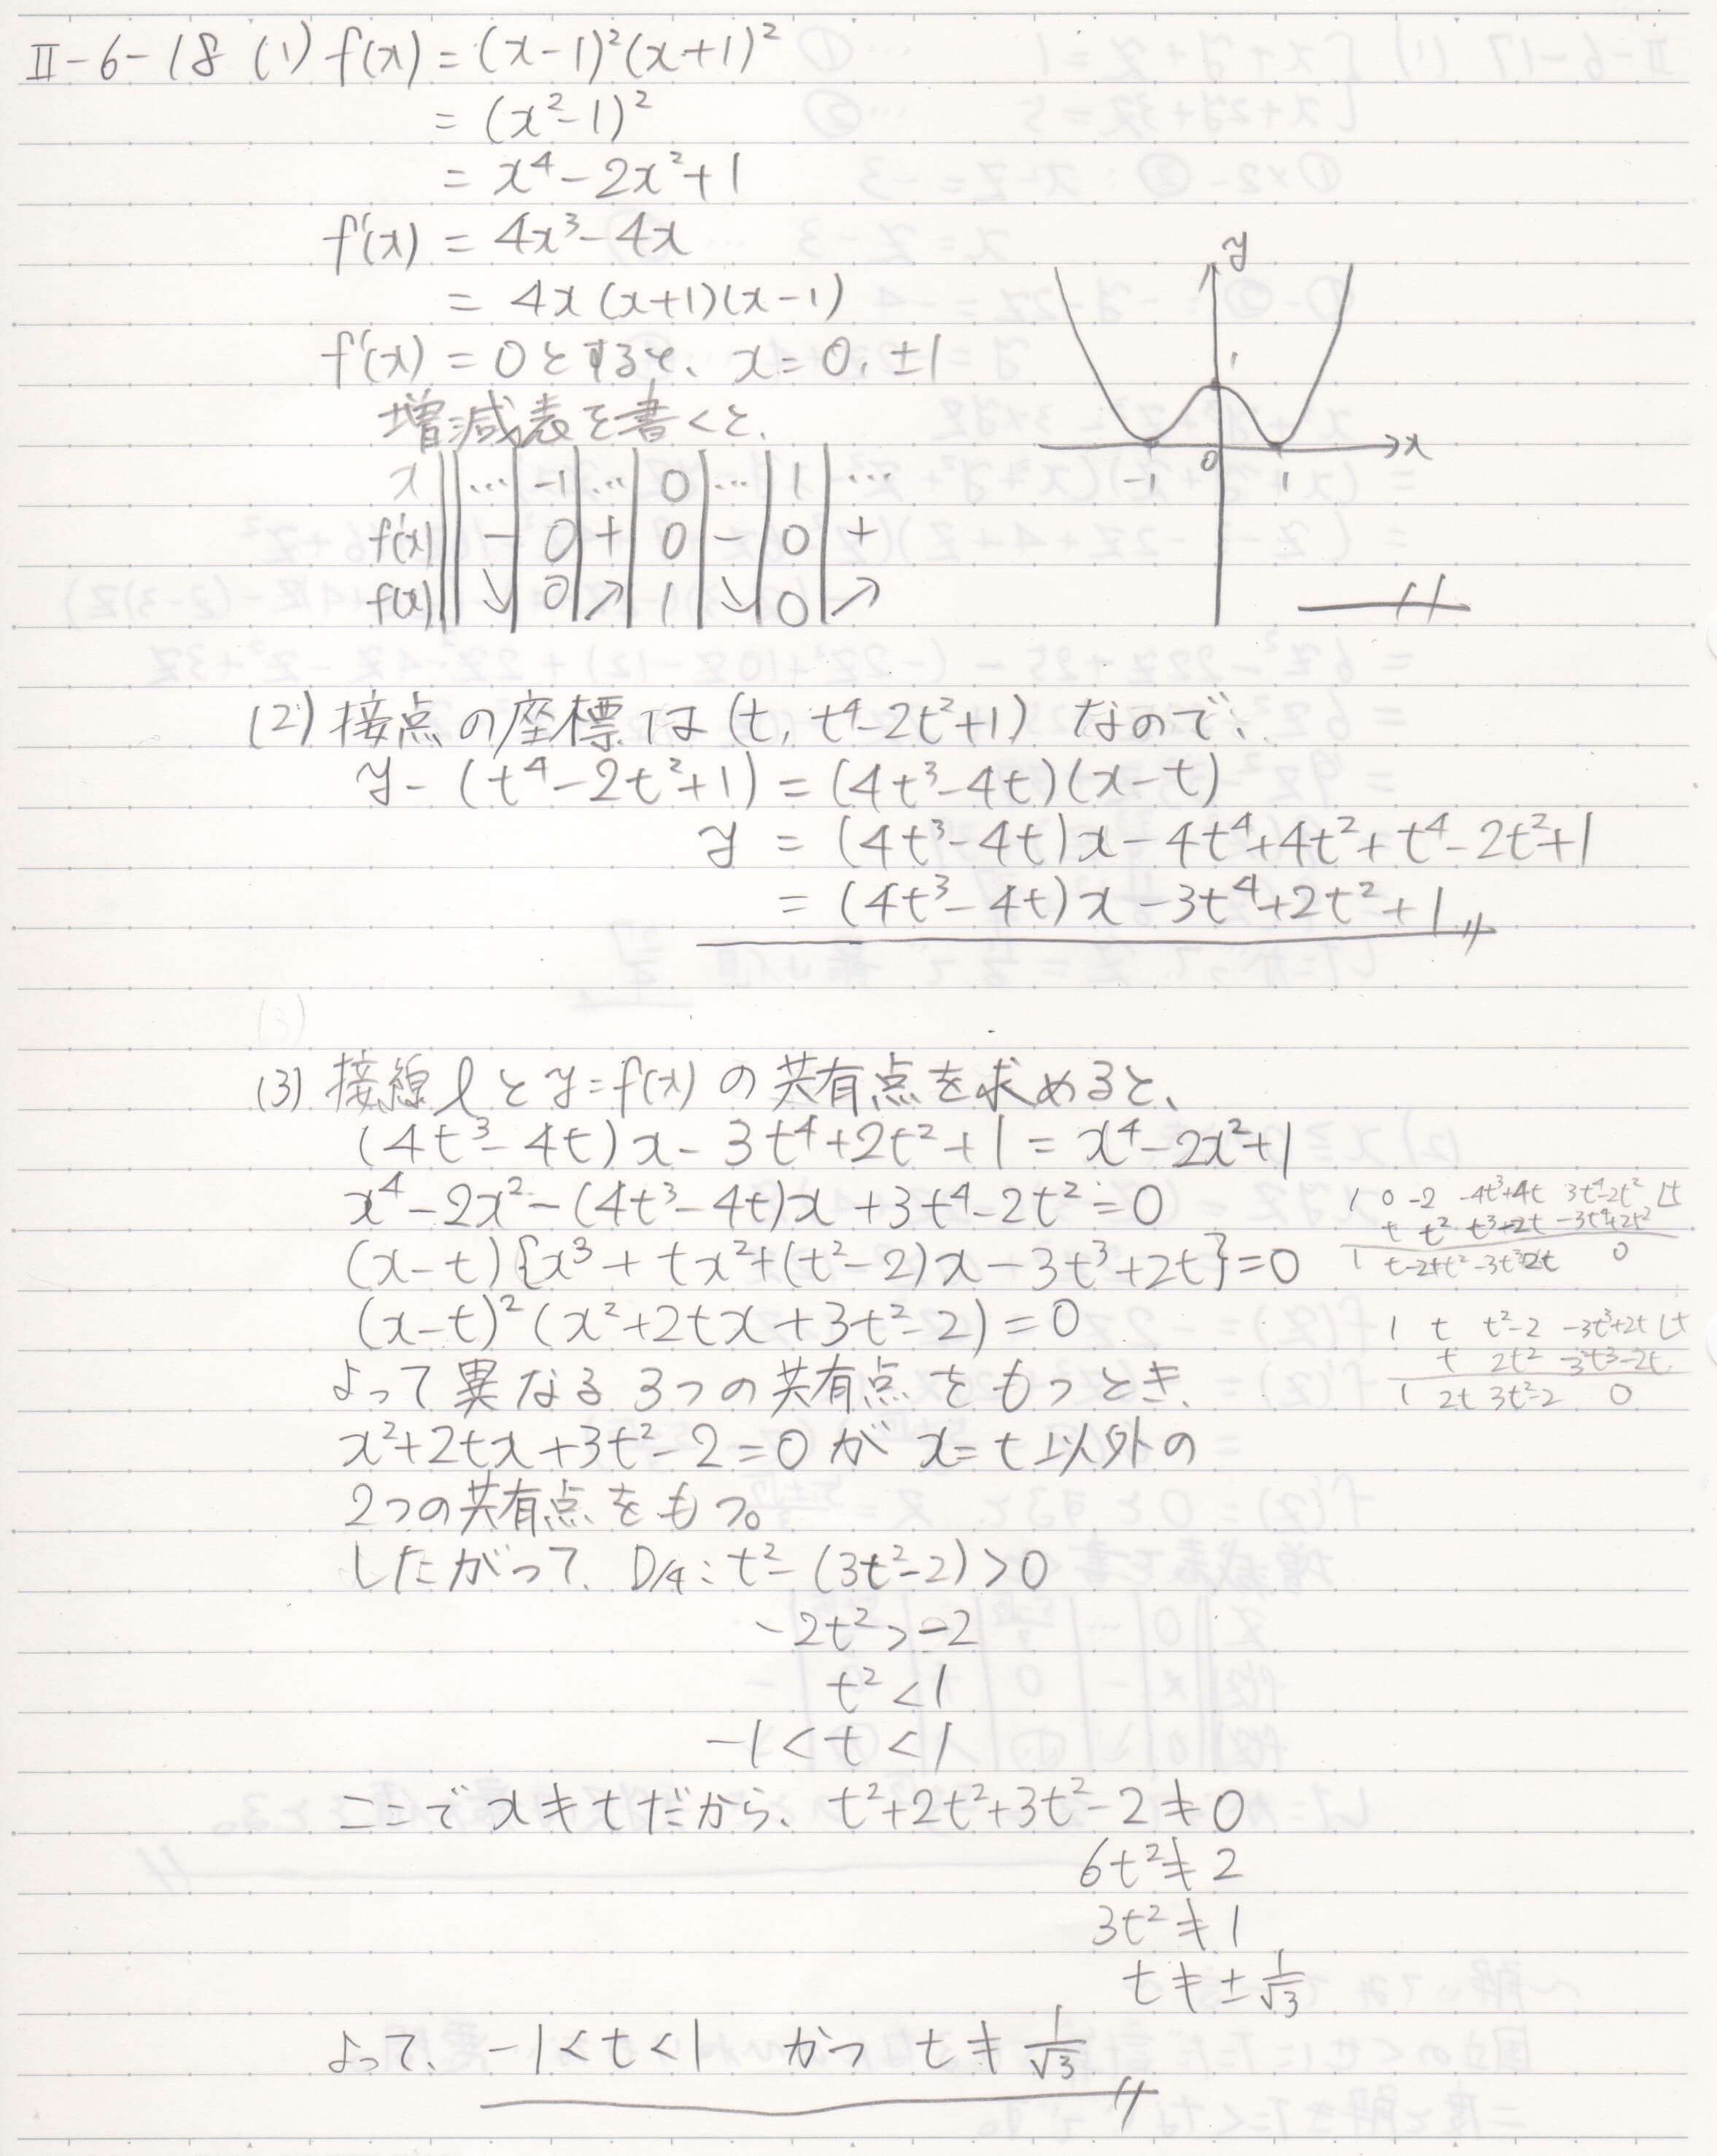 II-6-18 (1) f(x) = (x-1)²(x+1)²
= (x²-1)²
= x⁴-2x²+1
f'(x) = 4x³-4x
= 4x(x+1)(x-1)
f'(x) = 0とすると、x=0, ±1
増減表を書くと、
x ‖ … | -1 | … | 0 | … | 1 | …
f'(x) ‖ - | 0 | + | 0 | - | 0 | +
f(x) ‖ ↘ | 0 | ↗ | 1 | ↘ | 0 | ↗
y
1
x
-1 0 1
(2) 接点の座標は (t, t⁴-2t²+1) なので、
y-(t⁴-2t²+1) = (4t³-4t)(x-t)
y = (4t³-4t)x-4t⁴+4t²+t⁴-2t²+1
= (4t³-4t)x-3t⁴+2t²+1
(3)
(3) 接線lとy=f(x)の共有点を求めると、
(4t³-4t)x-3t⁴+2t²+1 = x⁴-2x²+1
x⁴-2x²-(4t³-4t)x+3t⁴-2t²=0
(x-t){x³+tx²+(t²-2)x-3t³+2t}=0
(x-t)²(x²+2tx+3t²-2)=0
よって異なる3つの共有点をもつとき、
x²+2tx+3t²-2=0が x=t以外の
2つの共有点をもつ。
したがって、D/4: t²-(3t²-2)>0
-2t²>-2
t²<1
-1<t<1
ここで x≠tだから、t²+2t²+3t²-2≠0
6t²≠2
3t²≠1
t≠±1/√3
よって、-1<t<1 かつ t≠1/√3
1 0 -2 -4t³+4t 3t⁴-2t² t
t t² t³-2t -3t⁴+2t²
1 t -2+t² -3t³+2t 0
1 t t²-2 -3t³+2t t
t 2t² 3t³-2t
1 2t 3t²-2 0